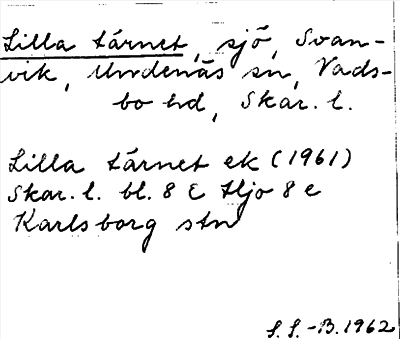 Lilla tärnet, sjö, Svan-
vik, Undenäs sn, Vads-
bo hd, Skar. l.
Lilla tärnet ek (1961)
Skar. l. bl. 8 E Hjo 8 e
Karlsborg stn
S. S. -B. 1962